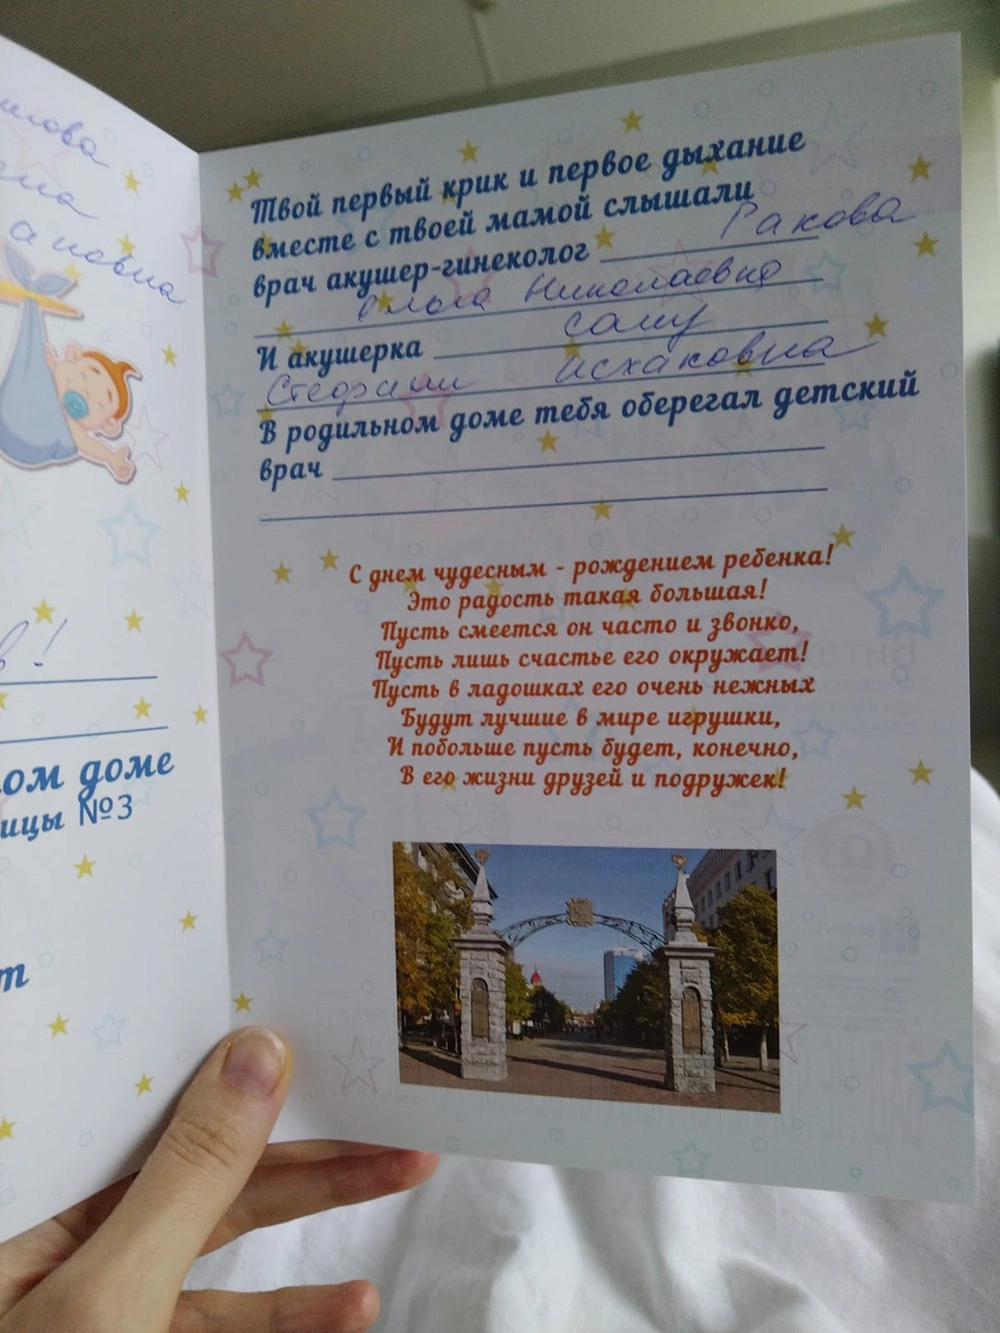 ановна
в!
ом доме
ицы №3
т
Твой первый крик и первое дыхание
вместе с твоей мамой слышали
врач акушер-гинеколог Ракова
Ольга Николаевна
И акушерка
Исхаковна
В родильном доме тебя оберегал детский
врач
С днем чудесным - рождением ребенка!
Это радость такая большая!
Пусть смеется он часто и звонко,
Пусть лишь счастье его окружает!
Пусть в ладошках его очень нежных
Будут лучшие в мире игрушки,
И побольше пусть будет, конечно,
В его жизни друзей и подружек!